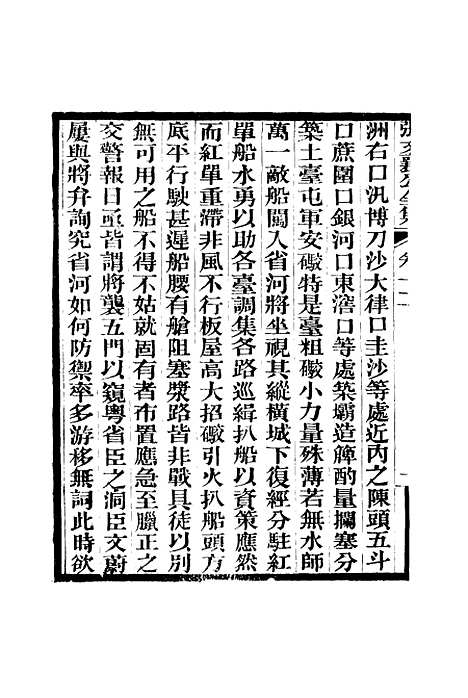 洲右口汛博刀沙大律口圭沙等處近內之陳頭五斗
口蔗圍口銀河口東滘口等處築壩造簰酌量攔塞分
築土臺屯軍安礮特是臺粗礮小力量殊薄若無水師
萬一敵船闖入省河將坐視其縱橫城下復經分駐紅
單船水勇以助各臺調集各路巡緝扒船以資策應然
而紅單重滯非風不行板屋高大招礮引火扒船頭方
底平行駛甚遲船腰有艙阻塞漿路皆非戰具徒以別
無可用之船不得不姑就固有者布置應急至臘正之
交警報日亟皆謂將襲五門以窺粵省臣之洞臣文蔚
屢與將弁詢究省河如何防禦率多游移無詞此時欲